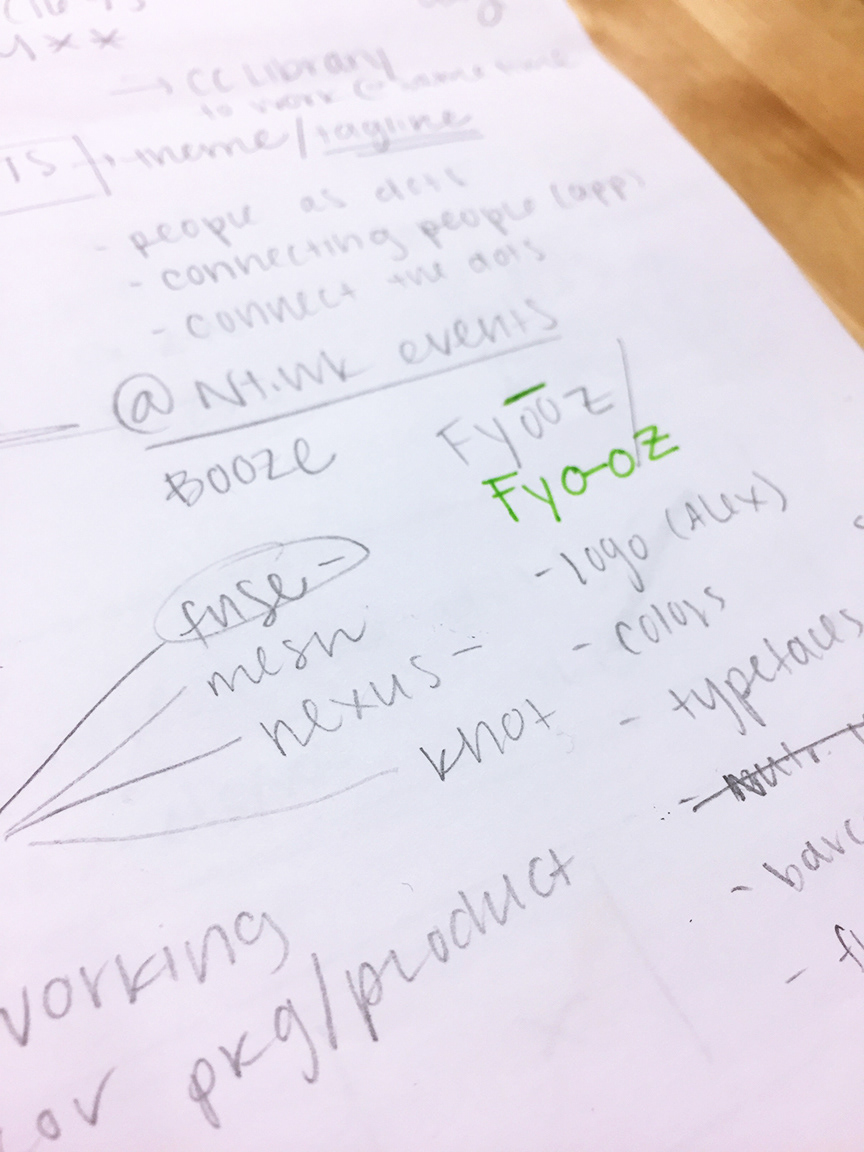 → CC Library
to work @ same time
TS + meme/tagline
- people as dots
- connecting people (app)
- connect the dots
@ Nt.wk events
BOOZE
Fyōōz/
Fyo-oz
fuse-
mesh
nexus-
knot
- logo (Alex)
- colors
- typefaces
- Nutr.
- barc
- fl
working
pkg/product